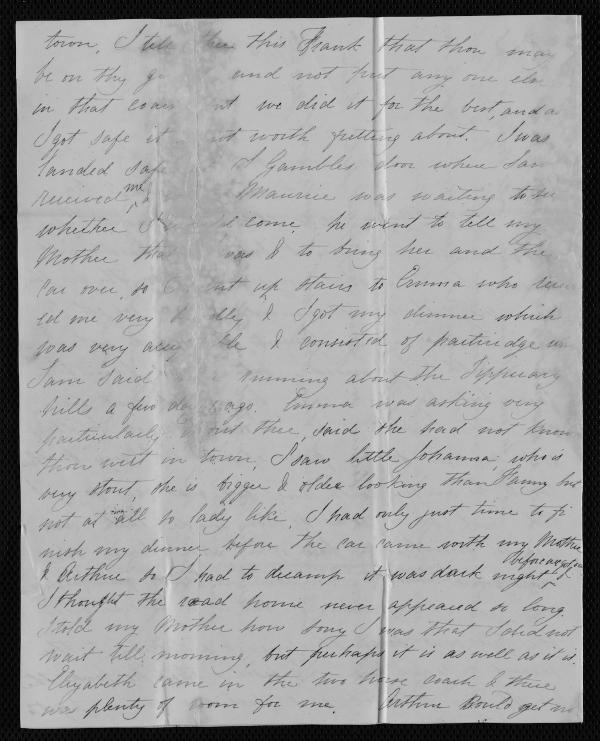 town, I tell thee this Frank that thou may
be on thy g and not put any one else
in that coac nt we did it for the best, and as
I got safe it not worth fretting about. I was
landed safe I Gambles door where Sam
received me, Maurice was waiting to see
whether I would come, he went to tell my
Mother that I was & to bring her and the
car over, so I went up stairs to Emma who recei
ed me very kindly & I got my dinner which
was very acceptable & consisted of partridge
Sam said running about the Tipperary
hills a few days ago. Emma was asking very
particularly about thee, said she had not known
thou wert in town, I saw little Johanna, who is
very stout, she is bigger & older looking than Fanny but
not at all so lady like, I had only just time to fi
nish my dinner before the car came with my Mother
& Arthur so I had to decamp it was dark night before we got
I thought the road home never appeared so long.
I told my Mother how sorry I was that I did not
wait till morning, but perhaps it is as well as it is.
Elizabeth came in the two horse coach & there
was plenty of room for me. Arthur could get no